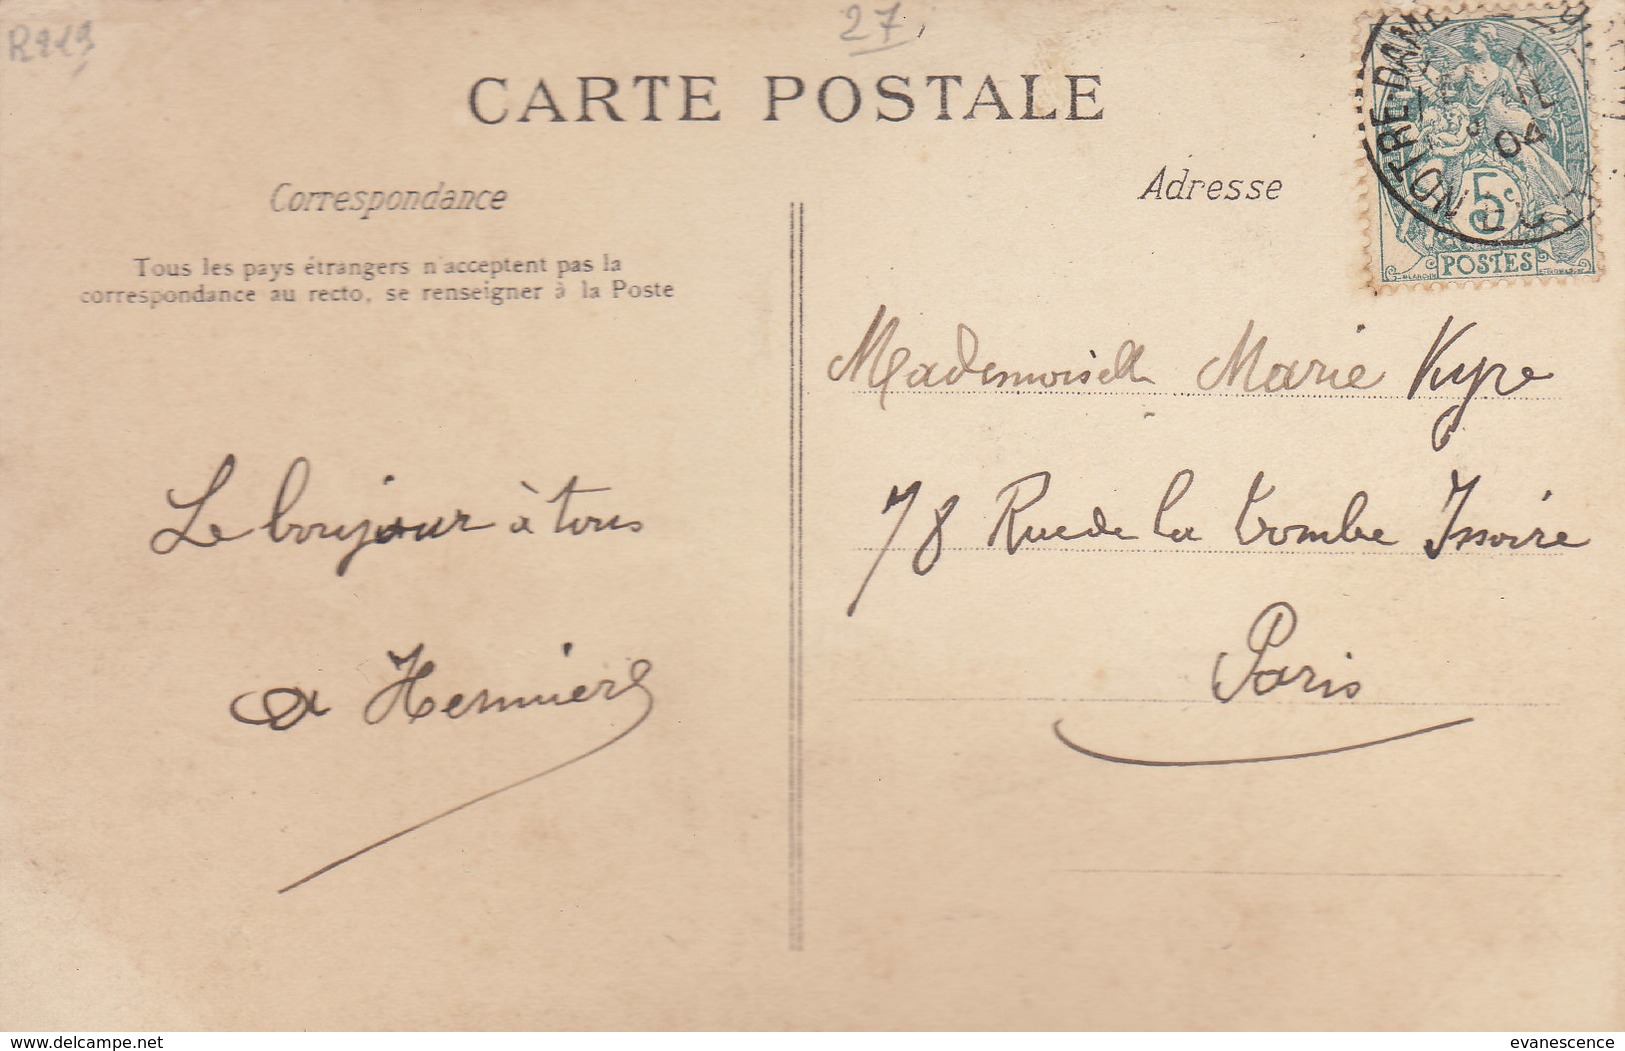 R219
27
CARTE POSTALE
Correspondance
Adresse
Tous les pays étrangers n'acceptent pas la
correspondance au recto, se renseigner à la Poste
NOTRE-DAME
04
5c
POSTES
Mademoiselle Marie Kype
78 Rue de la Tombe Issoire
Paris
Le bonjour à tous
delcampe.net
evanescence